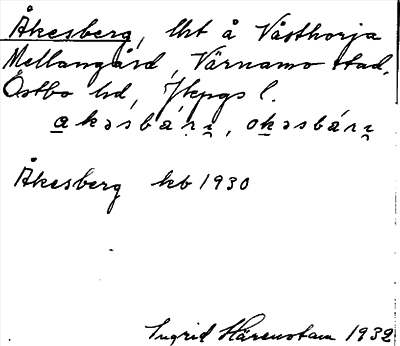 Åkesberg, lht å Västhorja
Mellangård, Värnamo stad,
Östbo hd, Jkpgs l.
akəsbárı, okəsbárı
Åkesberg kb 1930
Ingrid Härenstam 1932